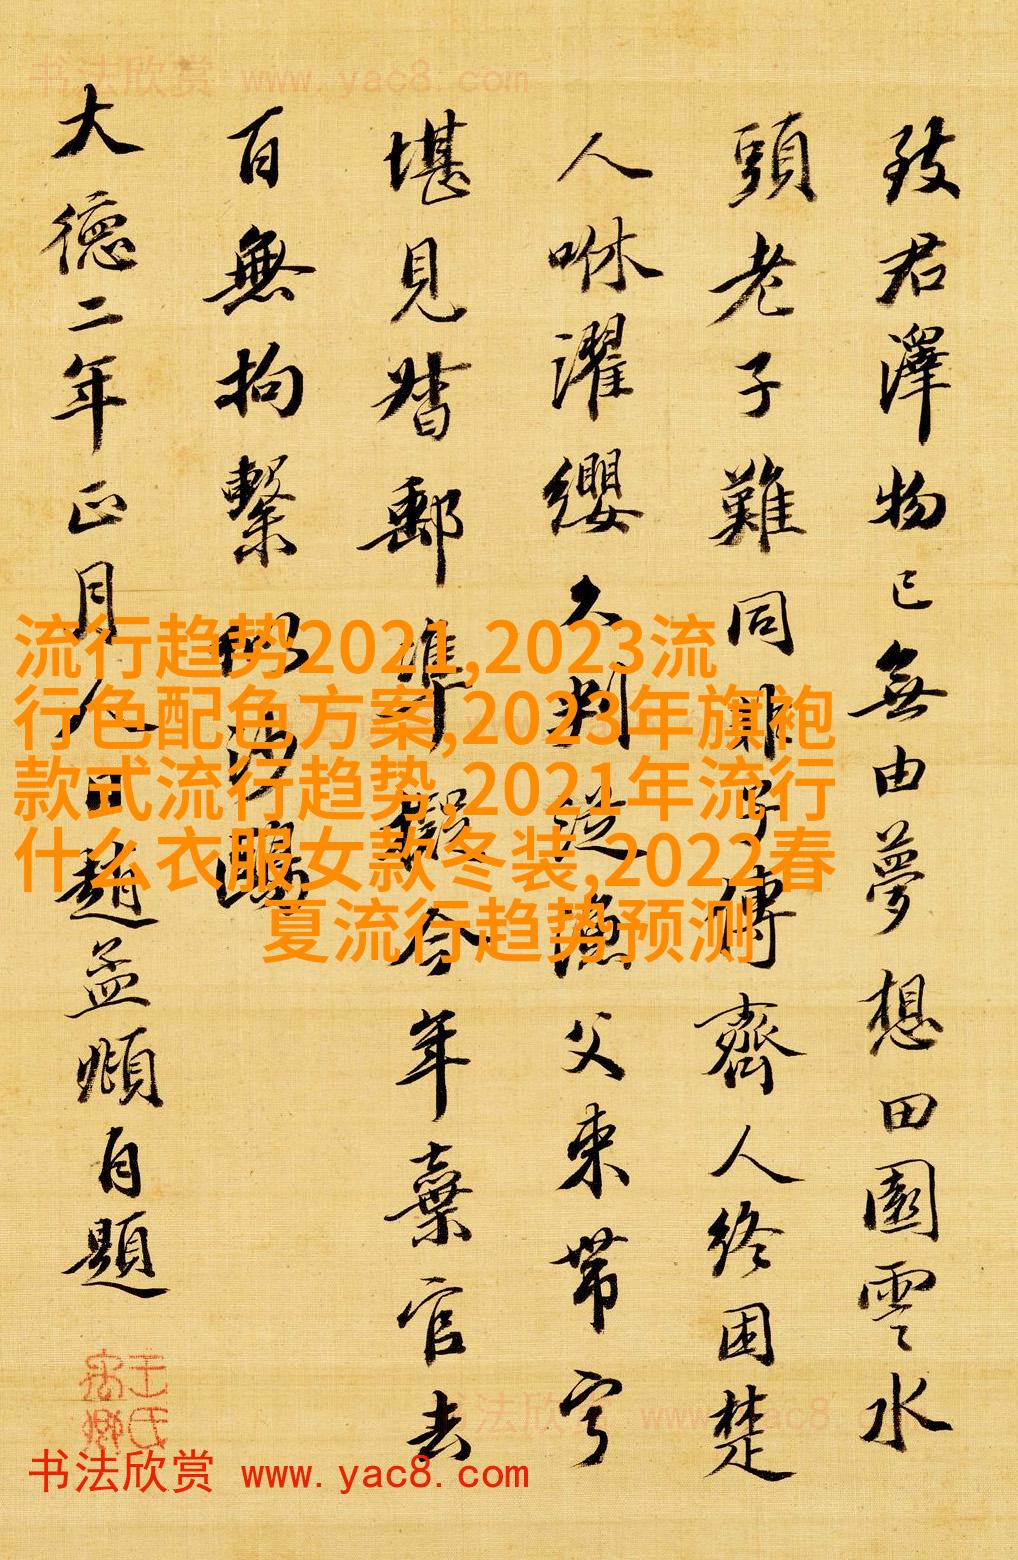 书法欣赏 www.yac8.com
致君澤物已無由夢想田園雲水
頭老子難同非子傳齊人終困楚
人咻濯纓久判從漁父束帶寧
堪見督郵準擬今年棄官去
百無拘繫似沙鷗
大德二年正月人日趙孟頫自題
流行趋势2021,2023流
行色配色方案,2023年旗袍
款式流行趋势,2021年流行
什么衣服女款冬装,2022春
夏流行趋势预测
书法欣赏 www.yac8
书法欣赏 www.yac8.com